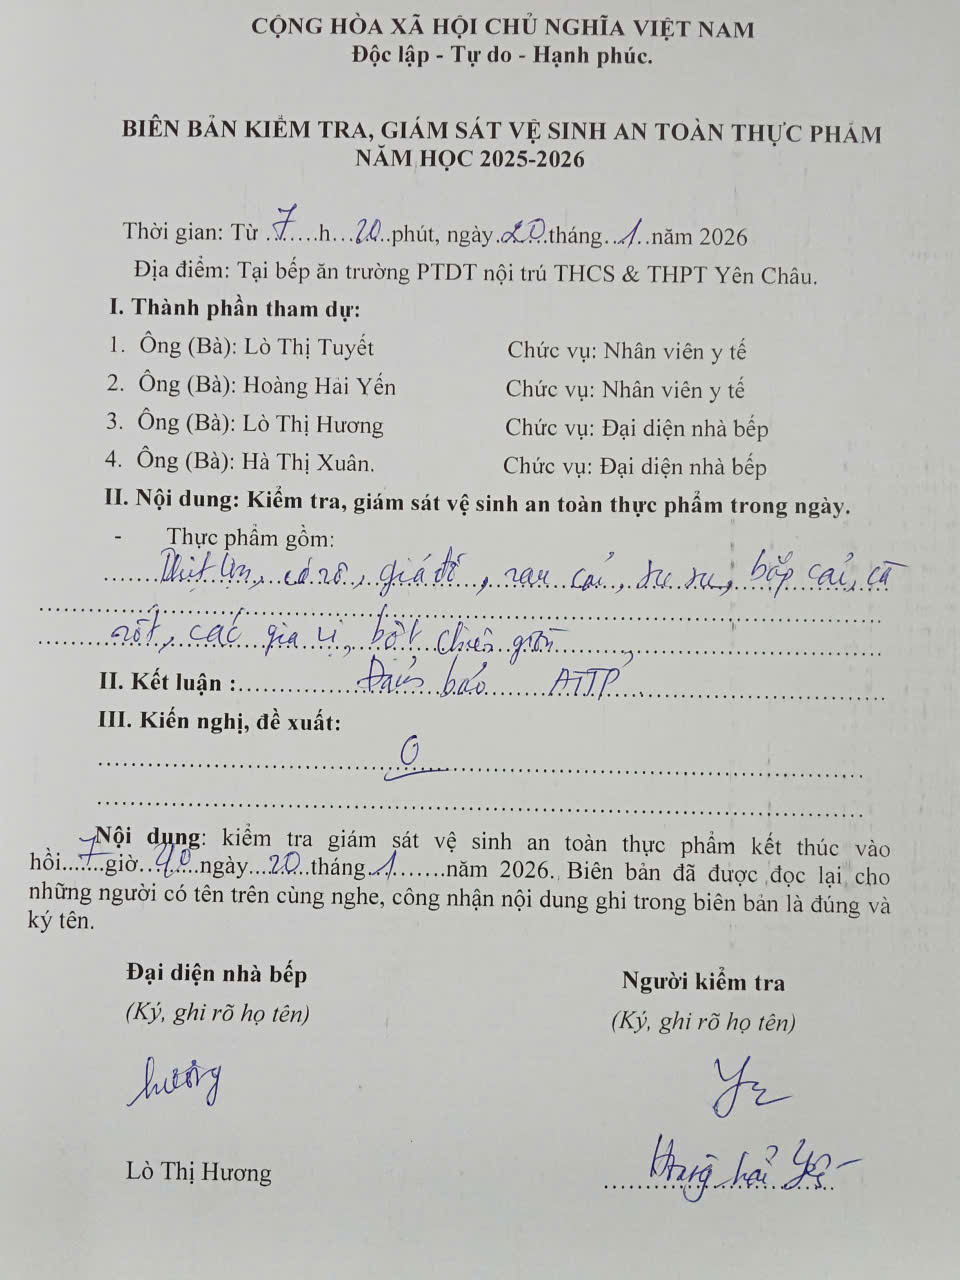 CỘNG HÒA XÃ HỘI CHỦ NGHĨA VIỆT NAM
Độc lập - Tự do - Hạnh phúc.
BIÊN BẢN KIỂM TRA, GIÁM SÁT VỆ SINH AN TOÀN THỰC PHẨM
NĂM HỌC 2025-2026
Thời gian: Từ 7 h 20 phút, ngày 20 tháng 1 năm 2026
Địa điểm: Tại bếp ăn trường PTDT nội trú THCS & THPT Yên Châu.
I. Thành phần tham dự:
1. Ông (Bà): Lò Thị Tuyết Chức vụ: Nhân viên y tế
2. Ông (Bà): Hoàng Hải Yến Chức vụ: Nhân viên y tế
3. Ông (Bà): Lò Thị Hương Chức vụ: Đại diện nhà bếp
4. Ông (Bà): Hà Thị Xuân. Chức vụ: Đại diện nhà bếp
II. Nội dung: Kiểm tra, giám sát vệ sinh an toàn thực phẩm trong ngày.
- Thực phẩm gồm:
Thịt lợn, cá rô, giá đỗ, rau cải, su su, bắp cải, cà
rốt, các gia vị, bột chiên giòn
II. Kết luận : Đảm bảo ATTP
III. Kiến nghị, đề xuất:
0
Nội dung: kiểm tra giám sát vệ sinh an toàn thực phẩm kết thúc vào
hồi 7 giờ 40 ngày 20 tháng 1 năm 2026. Biên bản đã được đọc lại cho
những người có tên trên cùng nghe, công nhận nội dung ghi trong biên bản là đúng và
ký tên.
Đại diện nhà bếp Người kiểm tra
(Ký, ghi rõ họ tên) (Ký, ghi rõ họ tên)
Hương
Lò Thị Hương Hoàng Hải Yến